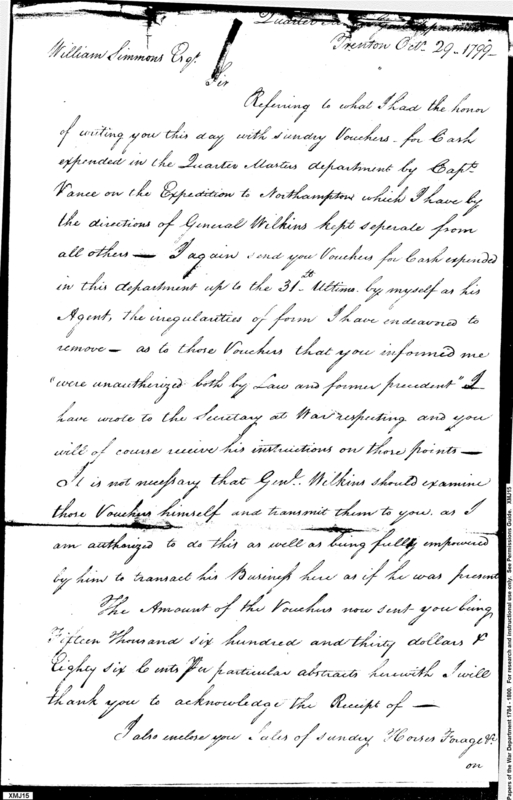 Quarter Department
Trenton Octr. 29. 1799
William Simmons Esqr.
Sir
Referring to what I had the honor
of writing you this day with sundry Vouchers for Cash
expended in the Quarter Masters department by Capt.
Vance on the Expedition to Northampton which I have by
the directions of General Wilkins kept seperate from
all others — I again send you Vouchers for Cash expended
in this department up to the 31st Ultimo. by myself as his
Agent, the irregularities of form I have endeavored to
remove — as to those Vouchers that you informed me
"were unauthorized both by Law and former precedent" I
have wrote to the Secretary at War respecting and you
will of course receive his instructions on those points —
It is not necessary that Genl. Wilkins should examine
those Vouchers himself and transmit them to you. as I
am authorized to do this as well as being fully empowered
by him to transact his Business here as if he was present
The Amount of the Vouchers now sent you being
Fifteen thousand six hundred and thirty dollars &
Eighty six Cents Per particular abstracts herewith I will
thank you to acknowledge the Receipt of —
I also enclose you Sales of sundry Horses Forage &c.
on
XMJ15
Papers of the War Department 1784 - 1800. For research and instructional use only. See Permissions Guide. XMJ15